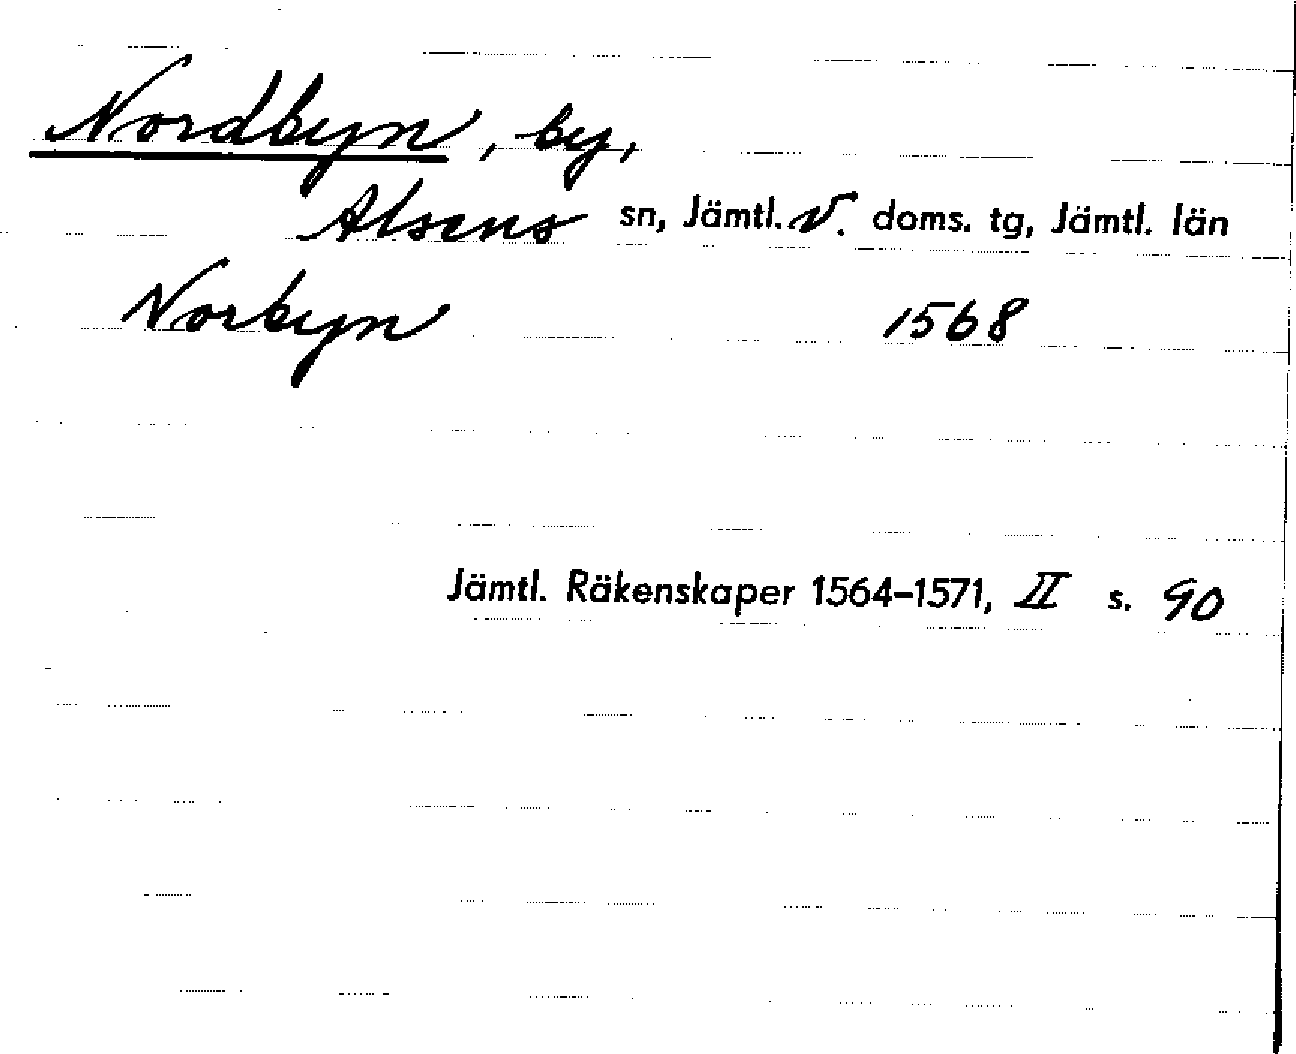 Nordbyn, by,
Alsens sn, Jämtl. V. doms. tg, Jämtl. län
Norbyn 1568
Jämtl. Räkenskaper 1564–1571, II s. 90